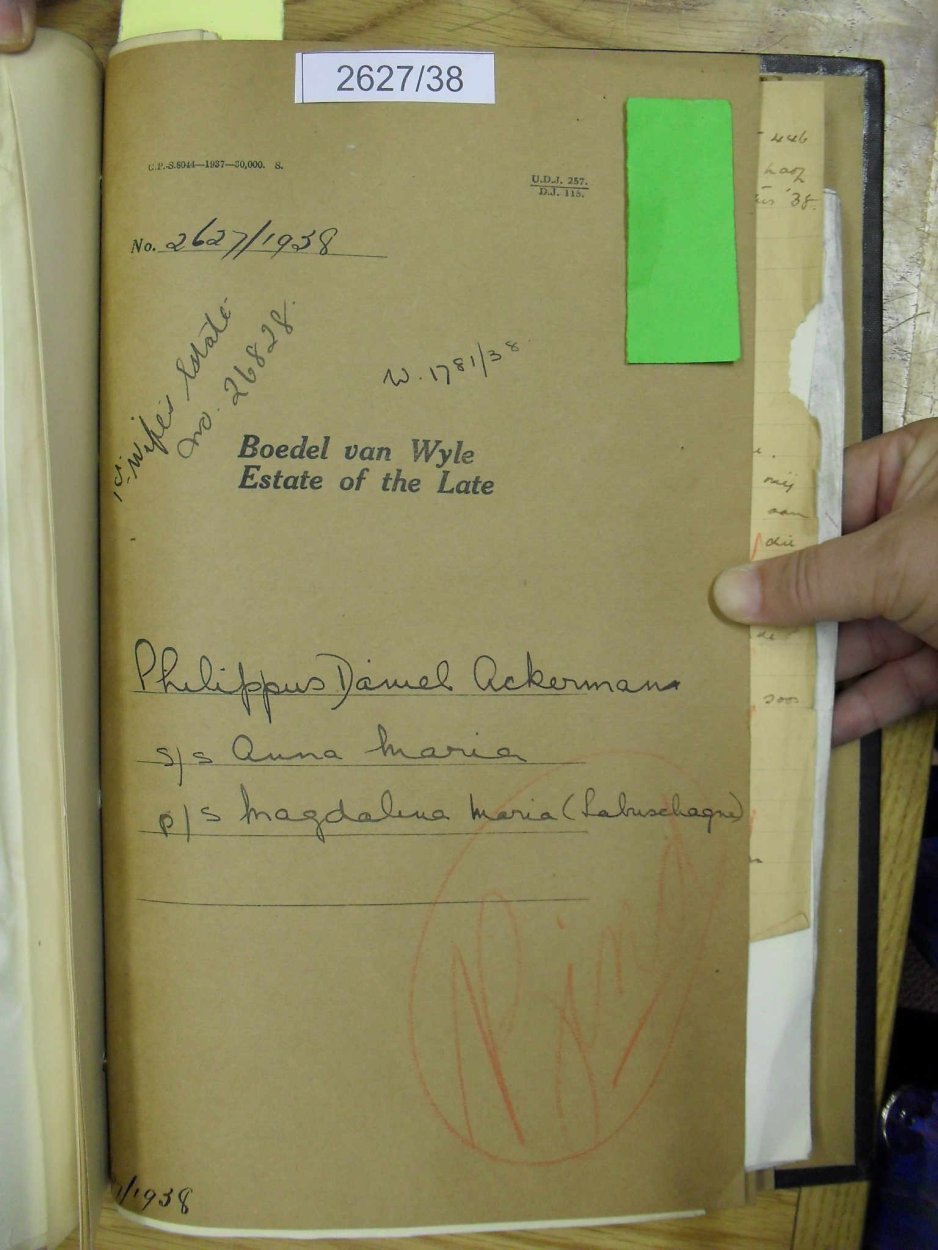 2627/38
G.P.-S.8044—1937—30,000. S.
U.D.J. 257.
D.J. 115.
No. 2627/1938
1st Wife's Estate
No. 26828
W. 1781/38
Boedel van Wyle
Estate of the Late
Philippus Daniel Ackermann
s/s Anna Maria
p/s Magdalena Maria (Labuschagne)
/1938
'38.
mij
aan
die
de
soos